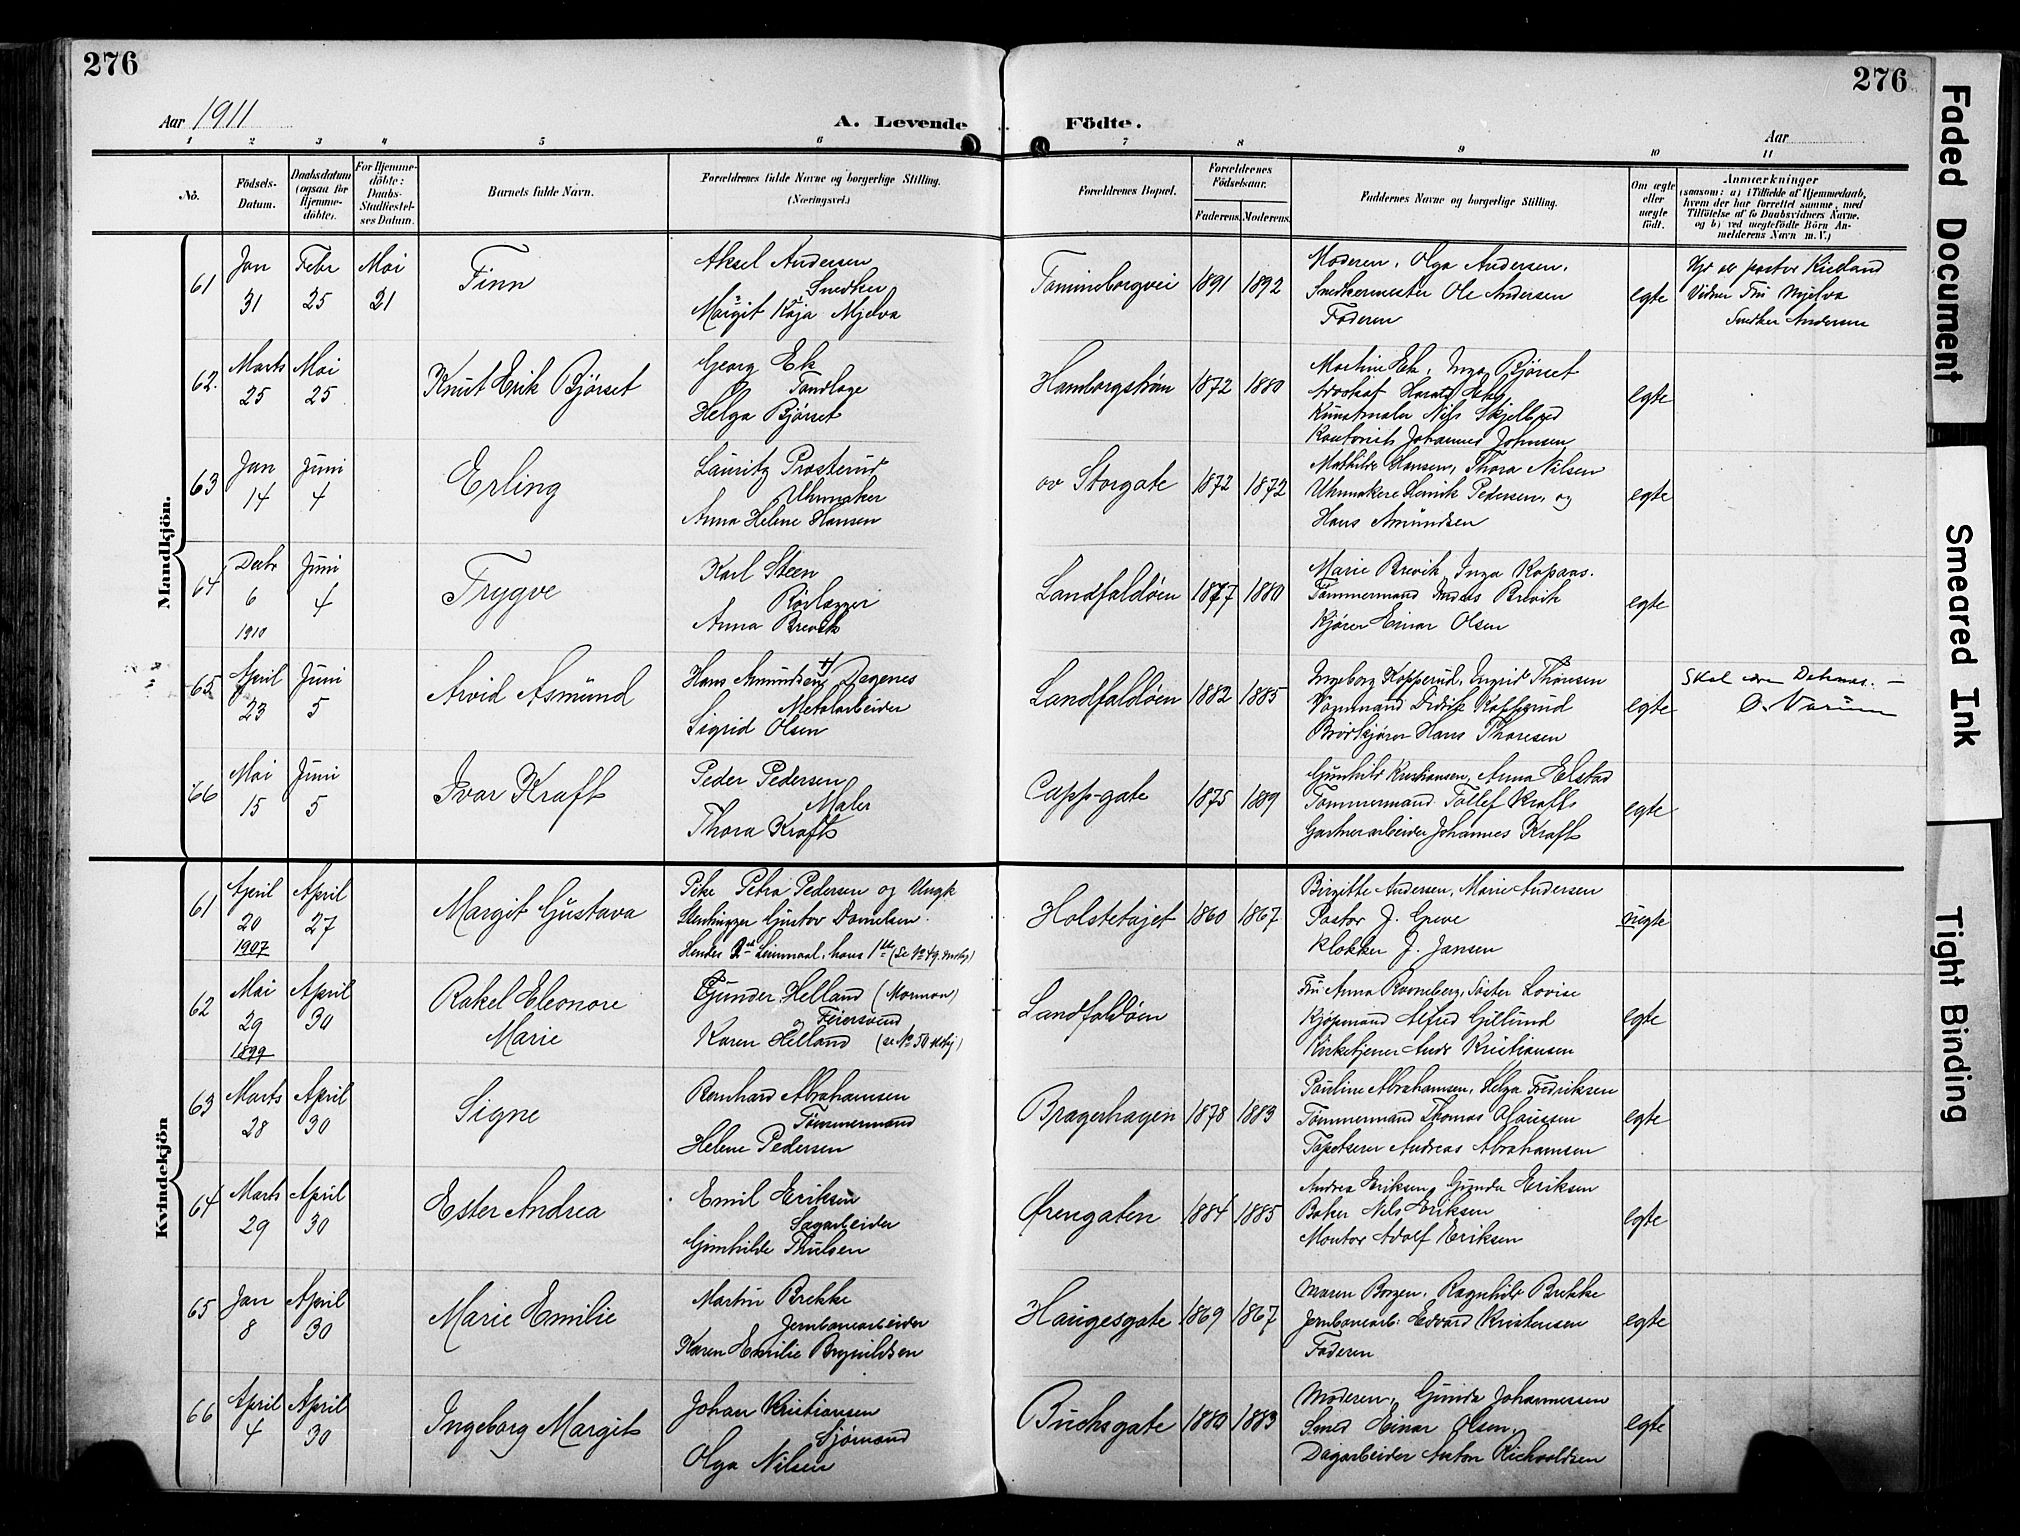 276
276
Aar 1911
A. Levende Födte.
Aar
1 2 3 4 5 6 7 8 9 10 11
No.
Födsels-Datum.
Daabsdatum (ogsaa for Hjemme-döbte).
For Hjemme-döbte: Daabs-Stadfæstel-ses Datum.
Barnets fulde Navn.
Forældrenes fulde Navne og borgerlige Stilling. (Næringsvei.)
Forældrenes Bopæl.
Forældrenes Födselsaar.
Faderens. Moderens.
Faddernes Navne og borgerlige Stilling.
Om ægte eller uægte födt.
Anmærkninger
(saasom: a) i Tilfælde af Hjemmedaab, hvem der har forrettet samme, med Tilföielse af to Daabsvidners Navne, og b) ved uægtefödte Börn An-melderens Navn m. V.)
Mandkjön.
61 Jan 31 Febr 25 Mai 21 Finn
Aksel Andersen
Snedker
Margit Kaja Mjelva
Tomineborgvei 1891 1892
Moderen, Olga Andersen,
Snedkermester Ole Andersen
Faderen
egte
Hjd av pastor Kielland
Vidner Fru Mjelva
Snedker Andersen
62. Marts 25 Mai 25 Knut Erik Bjørset
Georg Ek
Tandlæge
Helga Bjørset
Hamborgstrøm 1872 1880
Martine Ek, Inga Bjørset
Advokat Harald
Kunstmaler Nils Skjelbred
Kontorist Johannes Johnsen
egte
63 Jan 14 Juni 4 Erling
Lauritz Prosterud
Uhrmaker
Anna Helene Hansen
ov Storgate 1872 1872
Mathilde Hansen, Thora Nilsen
Uhrmakere Henrik Pedersen, og
Hans Amundsen
egte
64 Decbr 6 1910 Juni 4 Trygve
Karl Steen
Rørlægger
Anna Brevik
Landfaldøen 1877 1880
Marie Brevik, Inga Kopaas.
Tømmermand Brevik
Kjører Einar Olsen
egte
65 April 23 Juni 5 Arvid Asmund
Hans Amundsen Dagenes
Metalarbeider
Sigrid Olsen
Landfaldøen 1882 1885
Ingeborg Kopperud, Ingrid Thoresen
Didrik Kopperud
Hans Thoresen
egte
Skal
66 Mai 15 Juni 5 Ivar Kraft
Peder Pedersen
Maler
Thora Kraft
Capp-gate 1875 1889
Gunhild Kristiansen, Anna Elstad
Tømmermand Tollef Kraft
Gartnerarbeider Johannes Kraft
egte
Kvindekjön
61 April 20 1907 April 27 Margit Gustava
Pike Petra Pedersen og Ungk
Stenhugger Gustav Danielsen.
Hendes 2det Leiermaal, hans 1ste (Se No 49.
Holstetøjet 1860 1867
Birgitte Andersen, Marie Andersen
Pastor J. Greve
Klokker J. Jansen
uegte
62 Mai 29 1899 April 30 Rakel Eleonore Marie
Gunder Helland (Mormon)
Feiersvend
Karen Helland (se No 50
Landfaldøen
Fru Anna Ronneberg, Søster Lovise
Kjøpmand Alfred Gillund
Kirketjener Andr Kristiansen
egte
63 Marts 28 April 30 Signe
Bernhard Abrahamsen
Tømmermand
Helene Pedersen
Bragerhagen 1878 1883
Pauline Abrahamsen, Helga Fredriksen
Tømmermand Thomas Olaussen
Tapetserer Andreas Abrahamsen
egte
64 Marts 29 April 30 Ester Andrea
Emil Eriksen
Sagarbeider
Gunhilde Thulsen
Ørengaten 1884 1885
Andrea Eriksen, Gunda Eriksen
Baker Nils Eriksen
Montør Adolf Eriksen
egte
65 Jan 8 April 30 Marie Emilie
Martin Brekke
Jernbanearbeider
Karen Emilie Brynildsen
Haugesgate 1869 1867
Maren Borgen, Ragnhild Brekke
Jernbanearb. Edvard Kristensen
Faderen
egte
66 April 4 April 30 Ingeborg Margit
Johan Kristiansen
Sjømand
Olga Nilsen
Buchsgate 1880 1883
Moderen, Gunda Johannessen
Smed Einar Olsen,
Dagarbeider Anton Richvoldsen
egte
Faded Document
Smeared Ink
Tight Binding